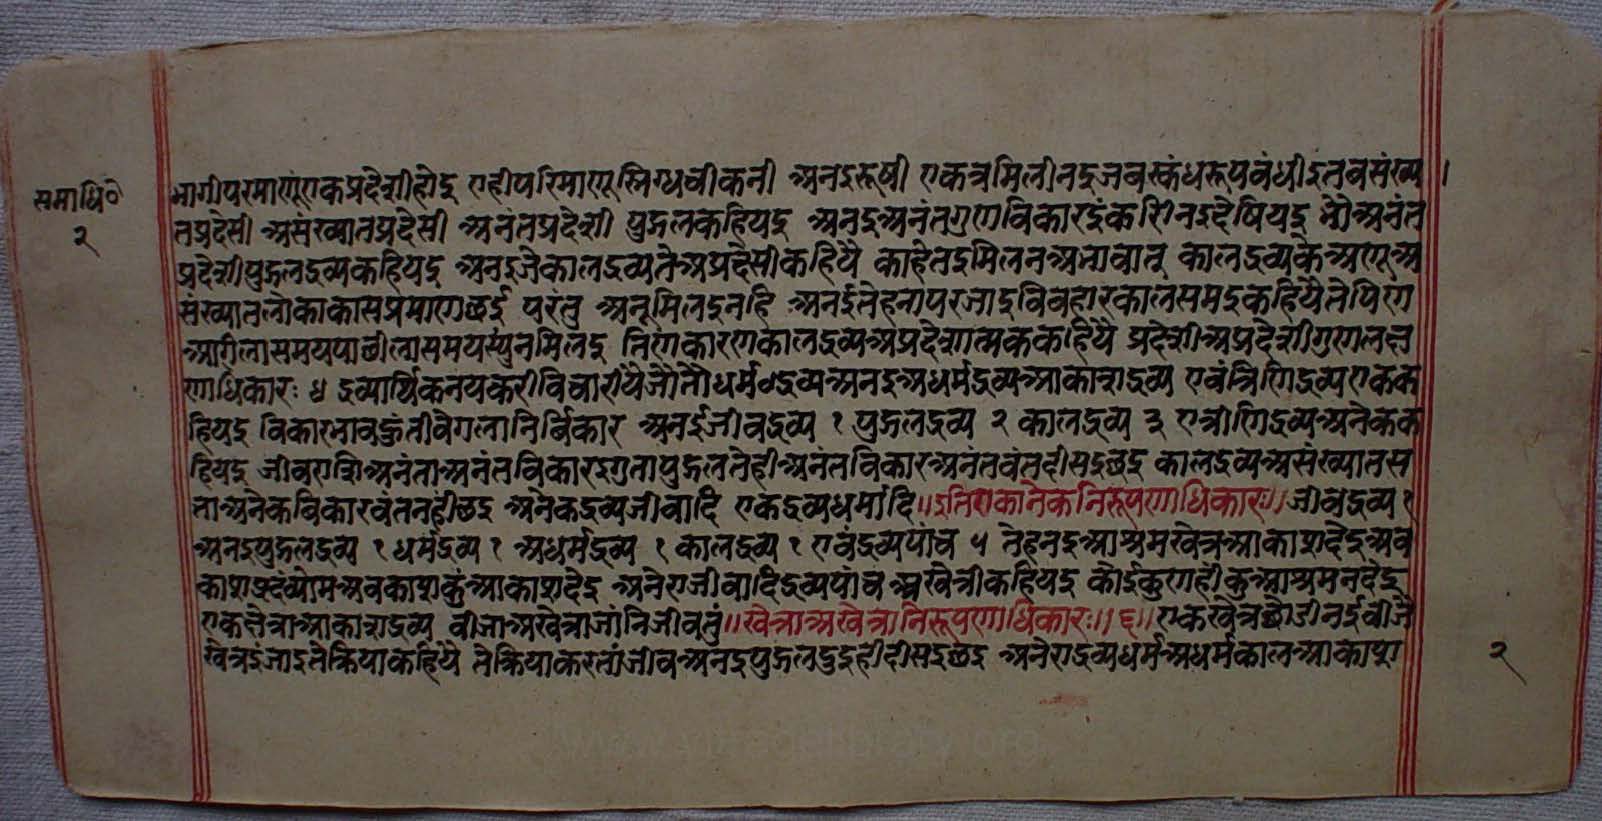 समाधि०
२
भागीपरमाणूएकप्रदेशीहोइ एहीपरिमाणूस्निग्धचीकनी अनइरूषी एकत्रमिलीनइजबस्कंधरूपबंधीइतबसंख्य
तप्रदेसी असंख्यातप्रदेसी अनंतप्रदेशी पुद्गलकहियइ अनइअनंतगुणविकारइंकरीिनइदेषियइ अनंत
प्रदेशीपुद्गलद्रव्यकहियइ अनइजेकालद्रव्यतेअप्रदेसीकहियै काहेतइमिलनअभावात् कालद्रव्यकेअणूअ
संख्यातलोकाकासप्रमाणछई परंतु अनूमिलइनहि अनईतेहनापरजाइविवहारकालसमइकहियैतेपिण
आगीलासमयपाछीलासमयस्युनमिलइ तिणकारणकालद्रव्यअप्रदेशात्मककहियै प्रदेशीअप्रदेशीगुणलक्ष
णाधिकारः ४ द्रव्यार्थिकनयकरीविचारीयैजौतौधर्मद्रव्यअनइअधर्मद्रव्यआकाशद्रव्य एवंत्रिणिद्रव्यएकक
हियइ विकारभावहुंतीवेगलानिर्विकार अनईजीवद्रव्य १ पुद्गलद्रव्य २ कालद्रव्य ३ एत्रीणिद्रव्यअनेकक
हियइ जीवराशिअनंताअनंतविकारइगुतापुद्गलतेहीअनंतविकारअनंतवंतदीसइछइ कालद्रव्यअसंख्यातस
ताअनेकविकारवंतनहीछइ अनेकद्रव्यजीवादि एकद्रव्यधर्मादि॥इतिएकानेकनिरूपणाधिकारः॥जीवद्रव्य १
अनइपुद्गलद्रव्य १ धर्मद्रव्य १ अधर्मद्रव्य १ कालद्रव्य १ एवंद्रव्यपांच ५ तेहनइआश्रमखेत्रआकाशदेइअव
काशप्रदंव्योमअवकाशकुंआकाशदेइ अनेराजीवादिद्रव्यपांच अखेत्रीकहियइ कोईकुणहीकुआश्रमनदेइ
एकखेत्राआकाशद्रव्य बीजाअखेत्राजांनिजीवतुं॥खेत्राअखेत्रानिरूपणाधिकारः॥६॥एकखेत्रछोडीनईबीजै
खेत्रइंजाइतेक्रियाकहियै तेक्रियाकरतांजीवअनइपुद्गलदुइहीदीसइछइ अनेराद्रव्यधर्मअधर्मकालआकाश
२